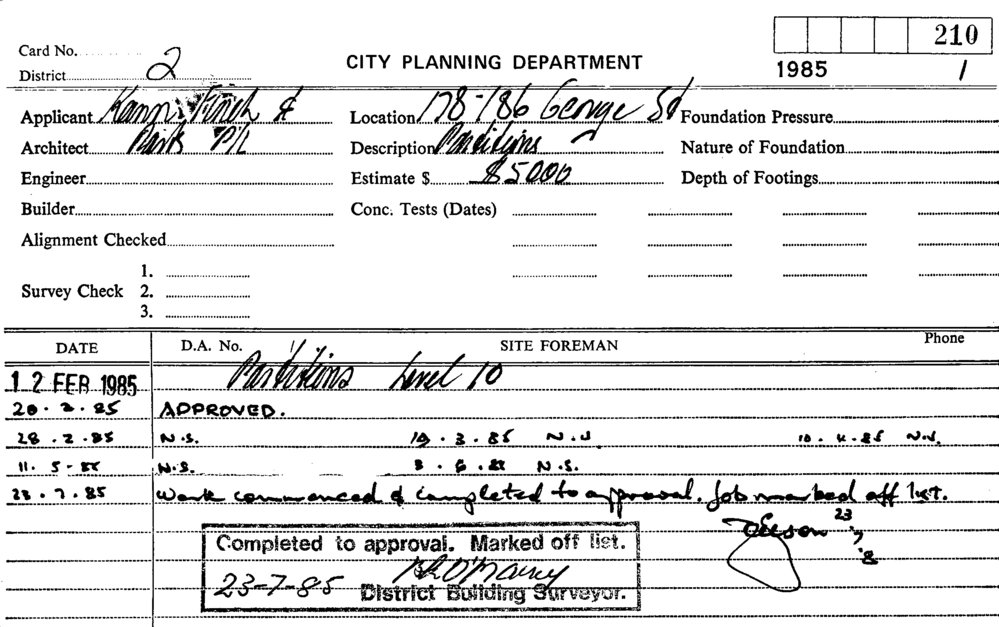 210
Card No.
District 2
CITY PLANNING DEPARTMENT
1985 /
Applicant Kann, Finch & Location 178-186 George St Foundation Pressure
Architect P/L Description Partitions Nature of Foundation
Engineer Estimate $ $5000 Depth of Footings
Builder Conc. Tests (Dates)
Alignment Checked
1.
Survey Check 2.
3.
DATE D.A. No. SITE FOREMAN Phone
12 FEB 1985 Partitions Level 10
20.2.85 APPROVED.
28.2.85 N.S. 19.3.85 N.S 10.4.85 N.S.
11.5.85 N.S. 3.6.85 N.S.
23.7.85 Work commenced & completed to approval. Job marked off list.
23
7
8
Completed to approval. Marked off list.
23-7-85
District Building Surveyor.